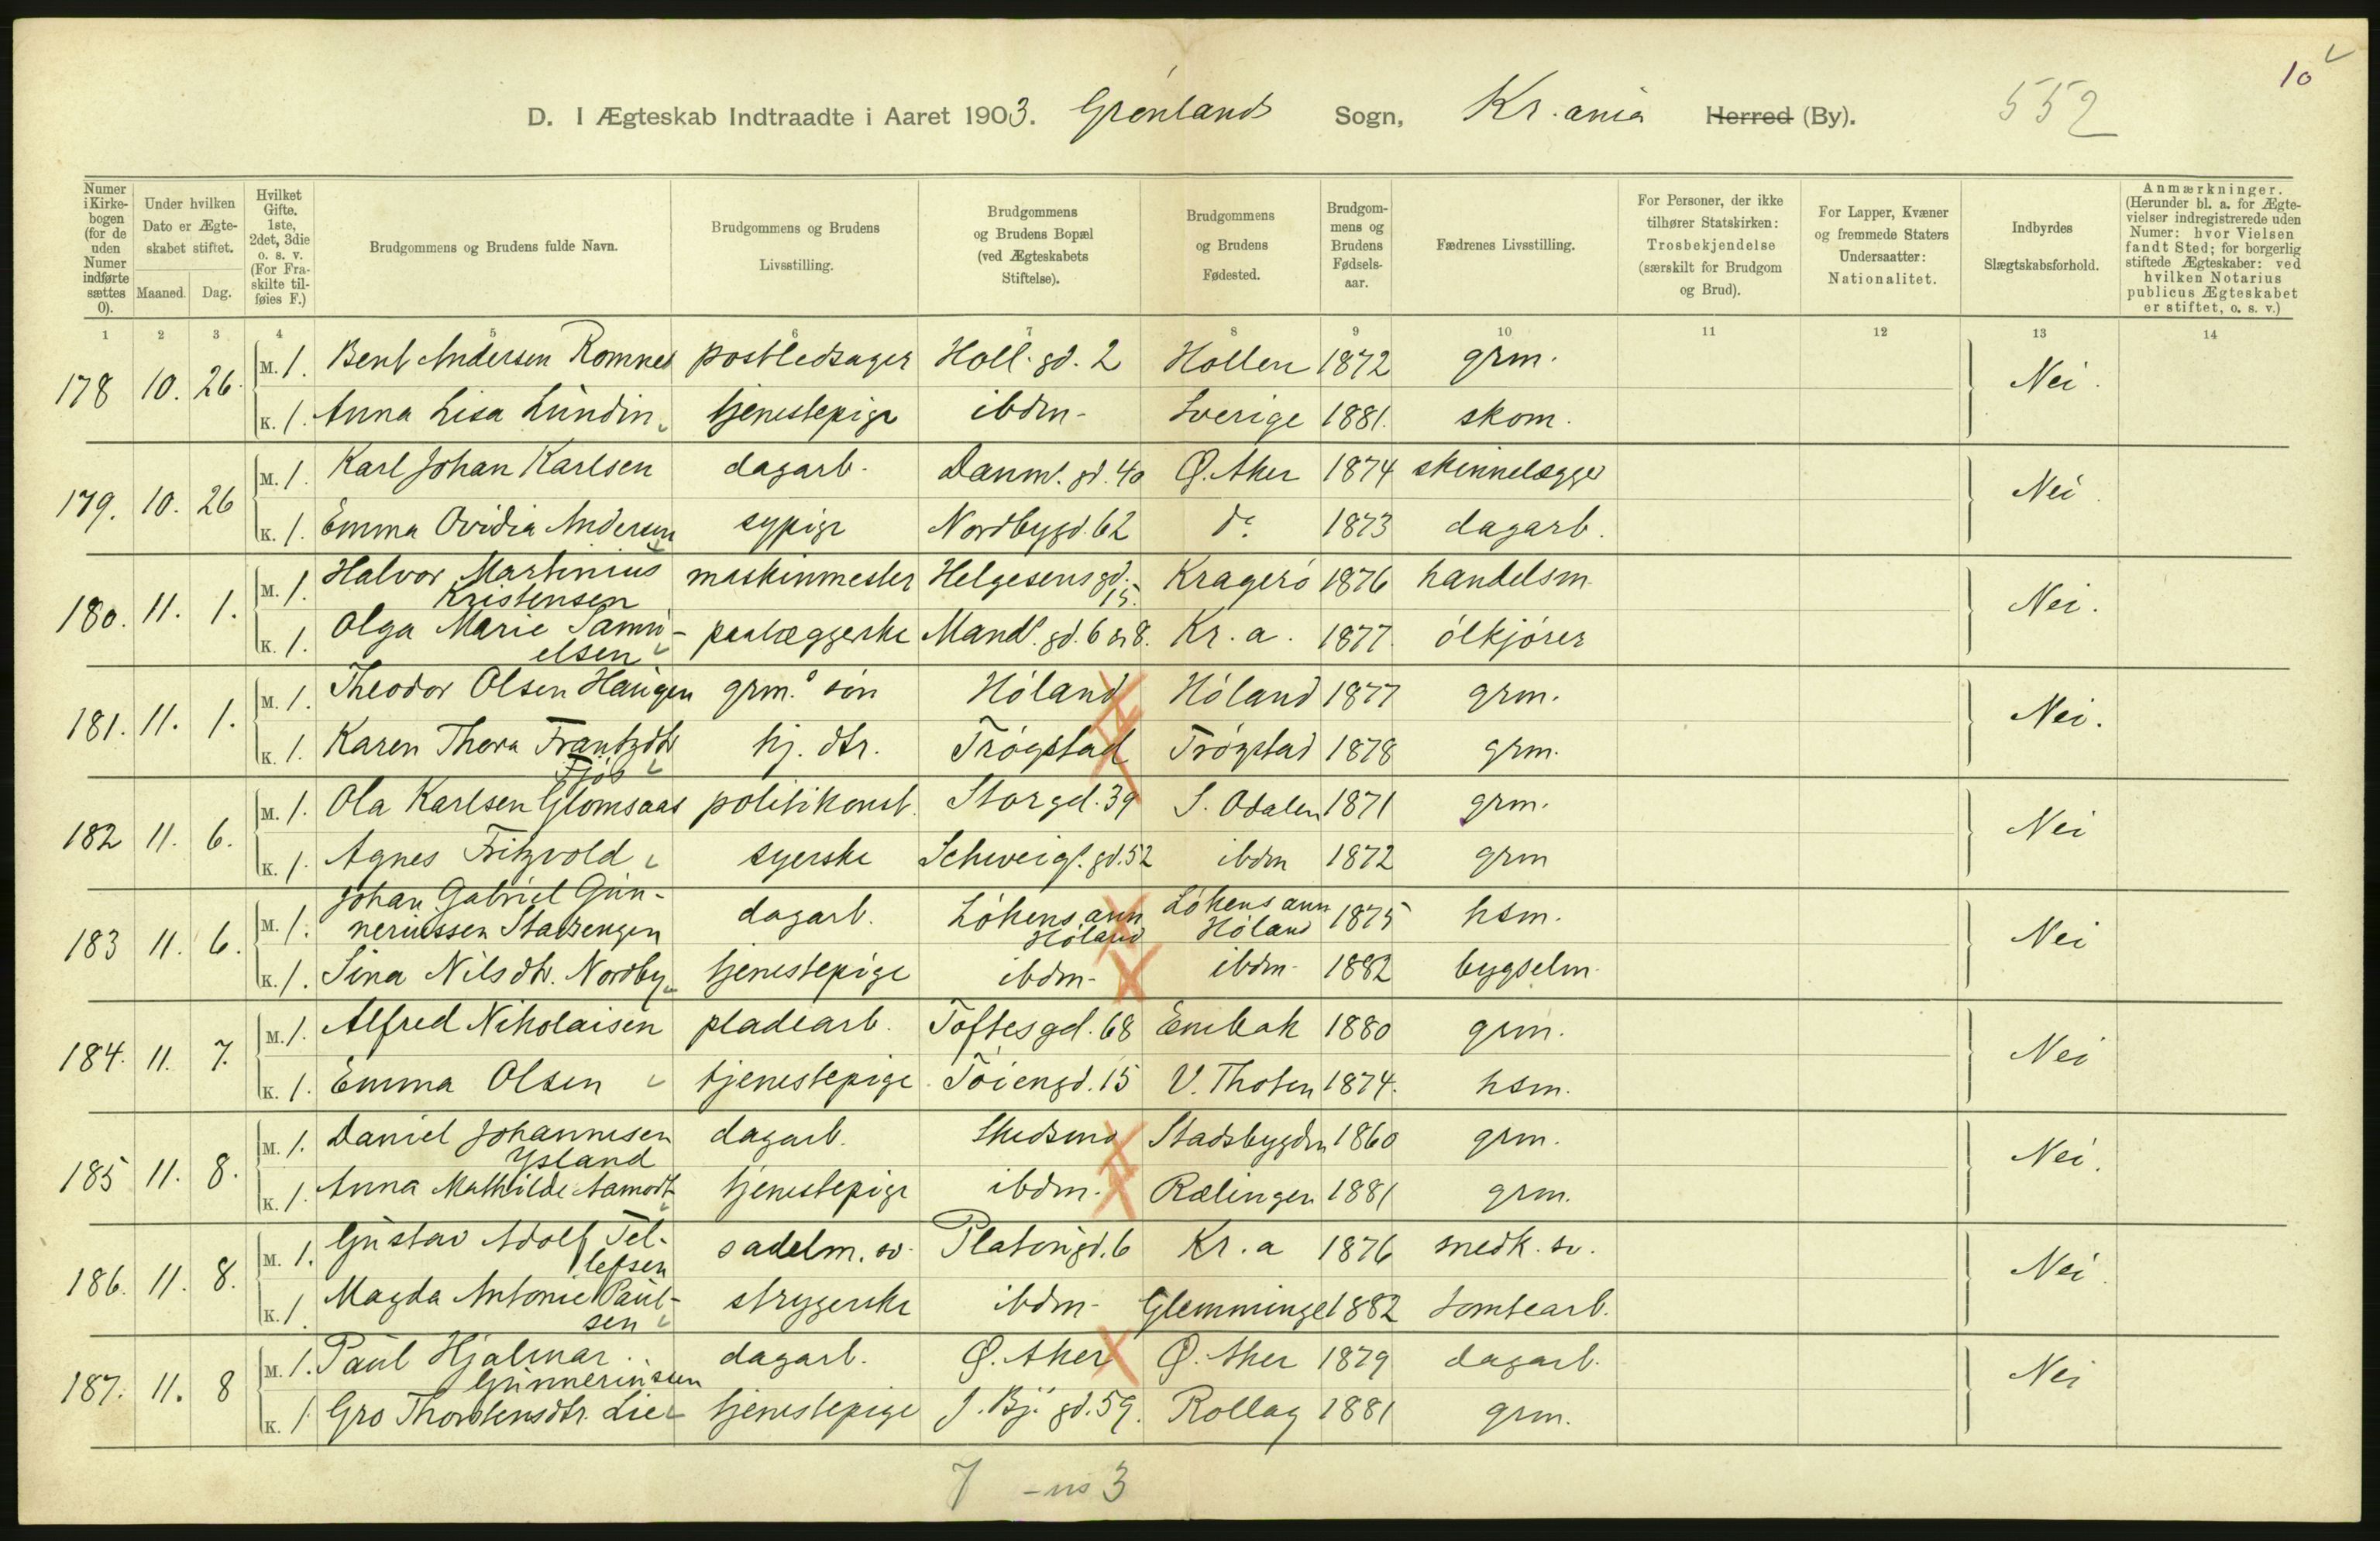 10
D. I Ægteskab Indtraadte i Aaret 1903. Grønlands Sogn, Kr.ania Herred (By). 552
Numer i Kirke- bogen (for de uden Numer indførte sættes 0).
Under hvilken Dato er Ægte- skabet stiftet.
Maaned. Dag.
Hvilket Gifte. 1ste, 2det, 3die o. s. v. (For Fra- skilte til- føies F.)
Brudgommens og Brudens fulde Navn.
Brudgommens og Brudens Livsstilling.
Brudgommens og Brudens Bopæl (ved Ægteskabets Stiftelse).
Brudgommens og Brudens Fødested.
Brudgom- mens og Brudens Fødsels- aar.
Fædrenes Livsstilling.
For Personer, der ikke tilhører Statskirken: Trosbekjendelse (særskilt for Brudgom og Brud).
For Lapper, Kvæner og fremmede Staters Undersaatter: Nationalitet.
Indbyrdes Slægtskabsforhold.
Anmærkninger. (Herunder bl. a. for Ægte- vielser indregistrerede uden Numer: hvor Vielsen fandt Sted; for borgerlig stiftede Ægteskaber: ved hvilken Notarius publicus Ægteskabet er stiftet, o. s. v.)
1 2 3 4 5 6 7 8 9 10 11 12 13 14
178 10. 26. M. 1. Bent Andersen Romnes postledsager Holl. gd. 2 Hollen 1872 grm. Nei.
K. 1. Anna Lisa Lundin tjenestepige ibdm- Sverige 1881. skom.
179. 10. 26 M. 1. Karl Johan Karlsen dagarb. Danm. gd. 40 Ø. Aker 1874 skinnelægger Nei.
K. 1. Emma Ovidia Andersen sypige Nordbygd. 62 do. 1873 dagarb.
180. 11. 1. M. 1. Halvor Martinius Kristensen maskinmester Helgesens gd. 15. Kragerø 1876 handelsm. Nei.
K. 1. Olga Marie Samu- elsen paalæggerske Mandl. gd. 6 & 8. Kr. a. 1877. ølkjører
181. 11. 1. M. 1. Theodor Olsen Haugen grm.s søn Høland Høland 1877 grm. Nei.
K. 1. Karen Thora Frantzdtr Fjøs hj. dtr. Trøgstad Trøgstad 1878 grm.
182 11. 6. M. 1. Ola Karlsen Glomsaas politikonst. Storgd. 39 S. Odalen 1871 grm. Nei
K. 1. Agnes Fritzvold syerske Schweig. gd. 52 ibdm 1872 grm
183 11. 6. M. 1. Johan Gabriel Gun- neriussen dagarb. Løkens ann Høland Løkens ann Høland 1875 hsm. Nei
K. 1. Sina Nilsdtr. Nordby tjenestepige ibdm- ibdm- 1882 bygselm.
184. 11. 7. M. 1. Alfred Nikolaisen pladearb. Toftesgd. 68 Enebak 1880 grm. Nei
K. 1. Emma Olsen tjenestepige Tøiengd. 15 V. Thoten 1874. hsm.
185 11. 8. M. 1. Daniel Johannesen Ysland dagarb. Skedsmo Stadsbygdn 1860 grm. Nei.
K. 1. Anna Mathilde Aamodt tjenestepige ibdm. Rælingen 1881 grm.
186. 11. 8. M. 1. Gustav Adolf Tel- lefsen sadelm. sv. Platougd. 6 Kr. a 1876 snedk. sv. Nei.
K. 1. Magda Antonie Paul- sen strygerske ibdm- Glemminge 1882 tomtearb.
187. 11. 8 M. 1. Paul Hjalmar Gunneriussen dagarb. Ø. Aker Ø. Aker 1879 dagarb. Nei
K. 1. Gro Thorstensdtr. Lie tjenestepige J. Bj. gd. 59. Rollag 1881 grm.
7 3